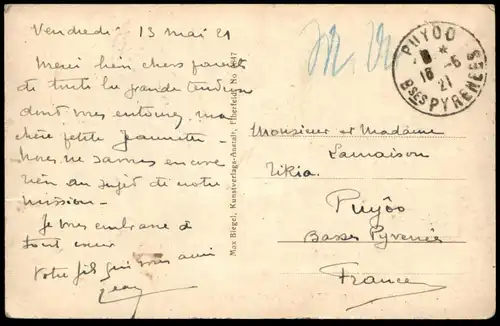 Vendredi 13 mai 21
Merci bien chers parents
de toute la grande tendresse
dont vous entourez ma
chère petite Jeannette -
Nous ne savons encore
rien au sujet de notre
mission -
Je vous embrasse de
tout cœur
Votre fils qui vous aime
Jean
Max Biegel, Kunstverlags-Anstalt, Elberfeld. No.
PUYOO
16 -5
21
BSES PYRENEES
Monsieur et Madame
Lamaison
Tikia
Puyôo
Basses Pyrenées
France